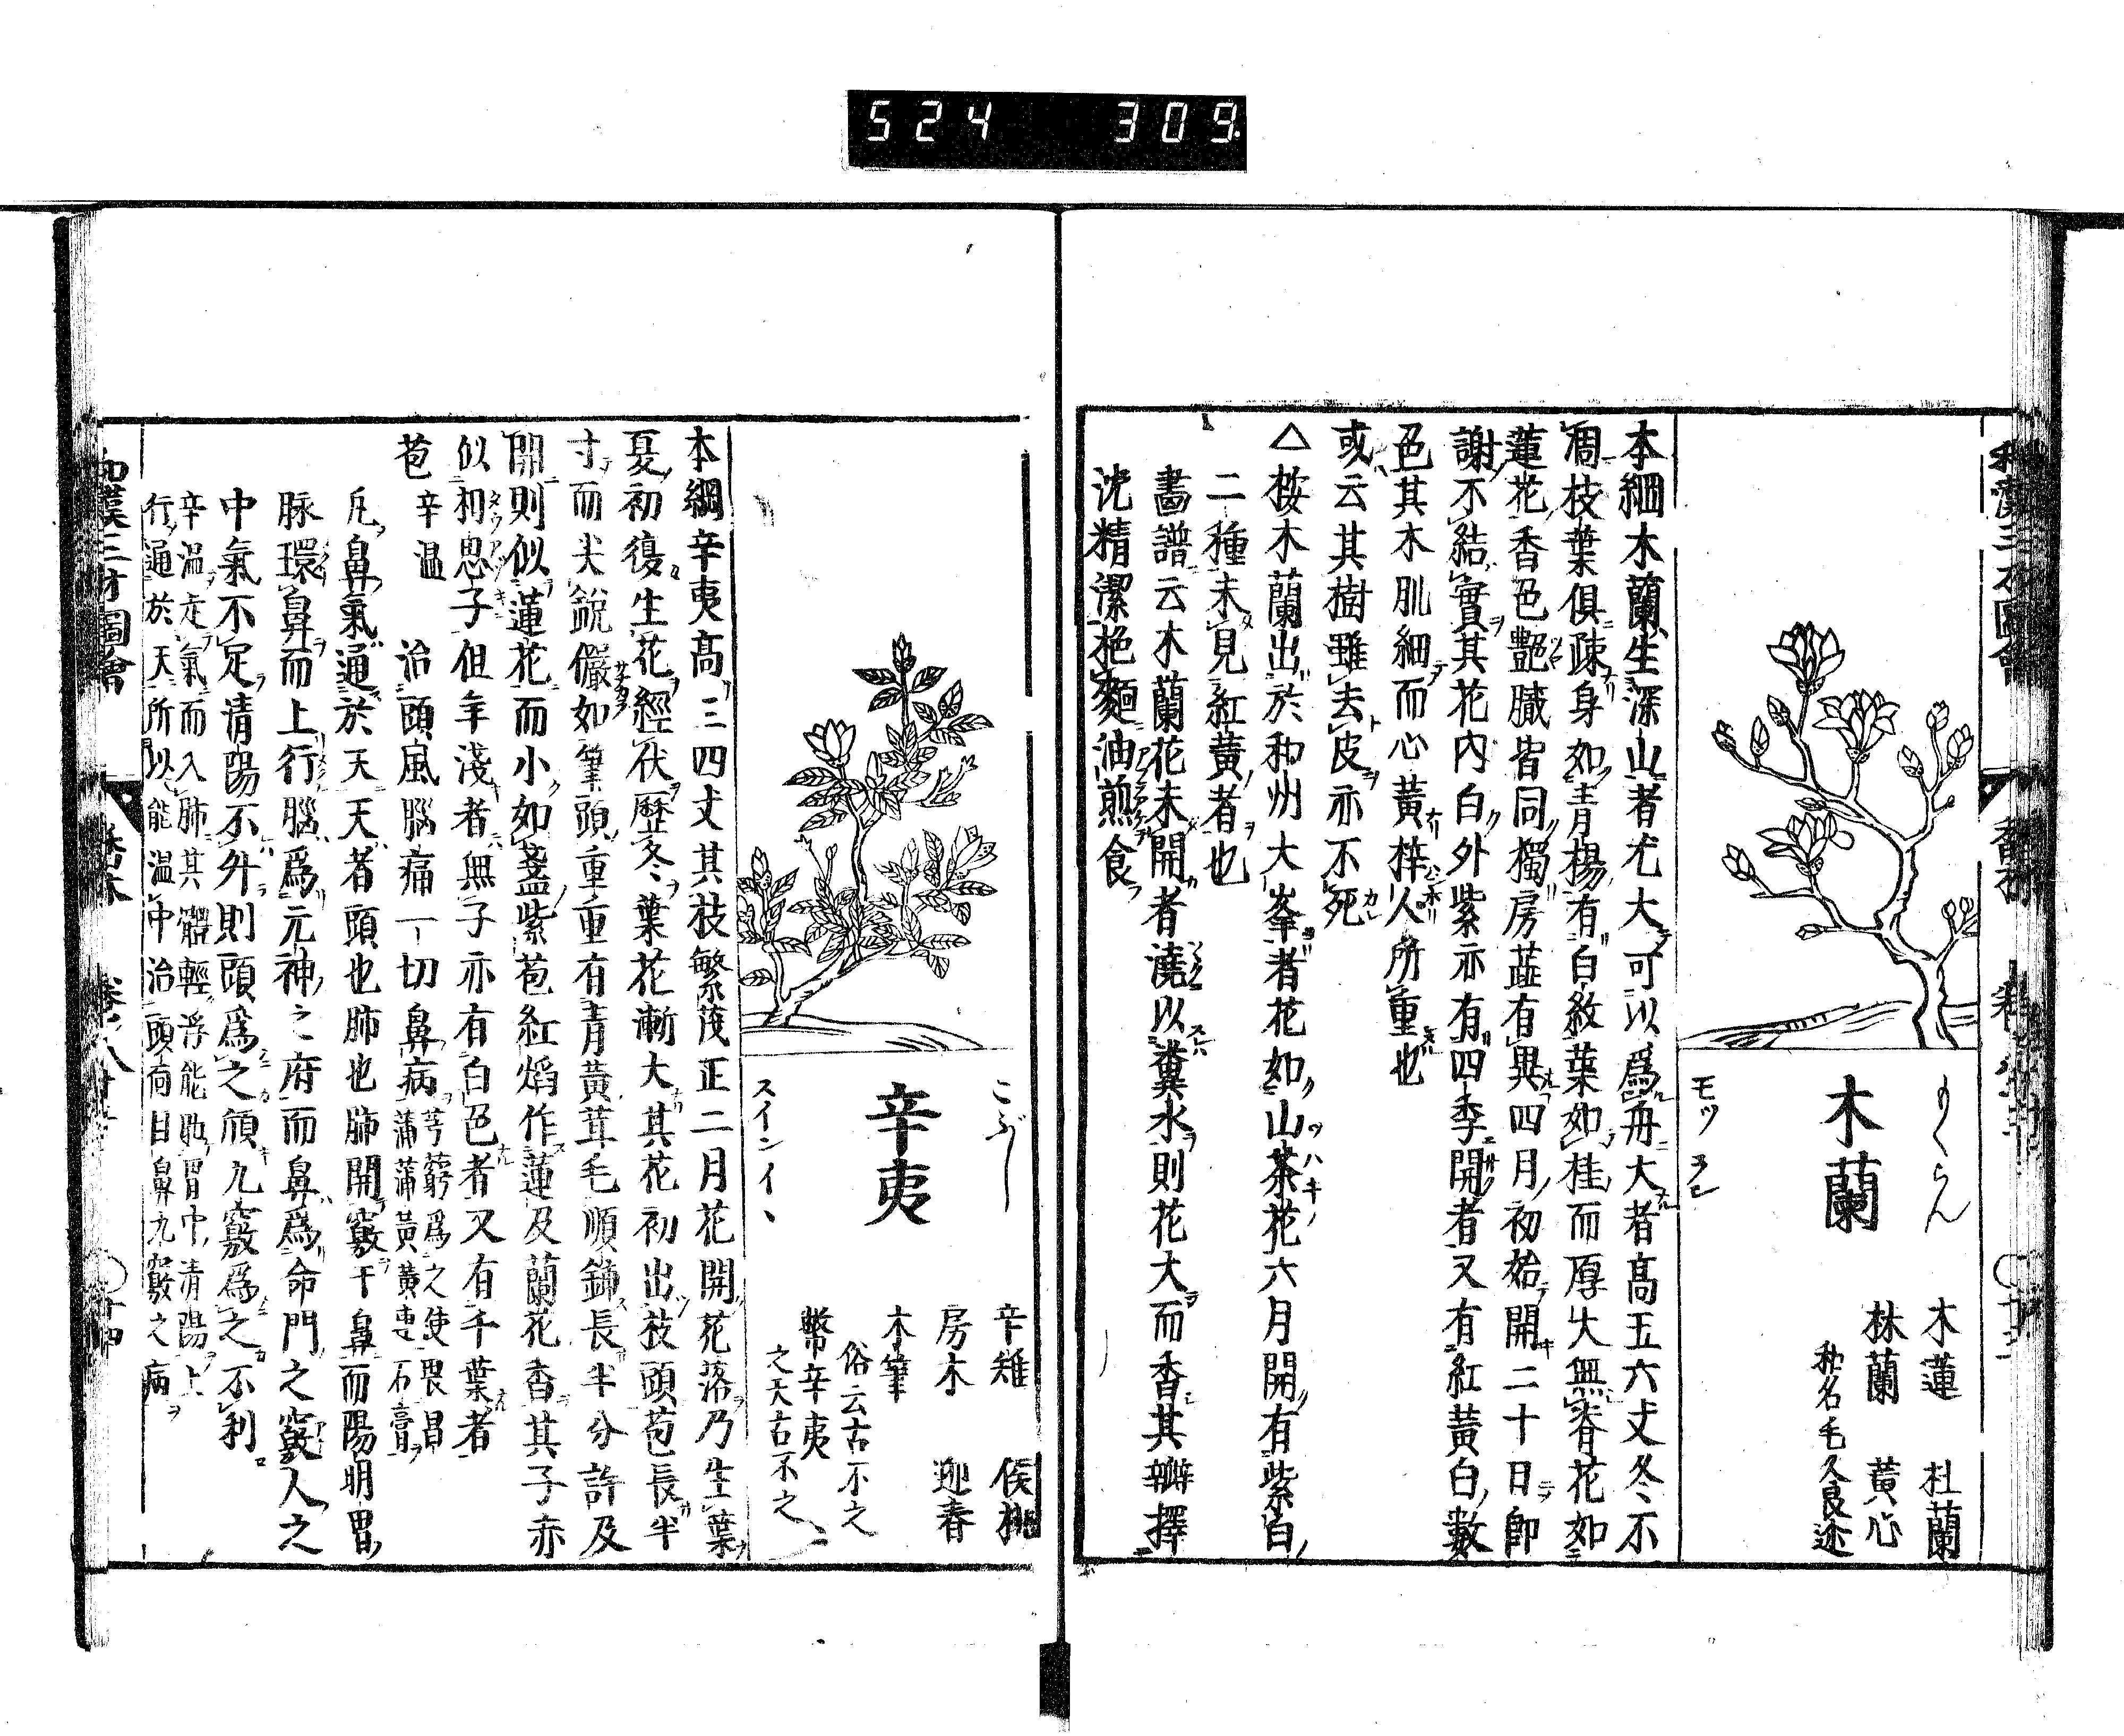 524 309
もくらん
木蘭
モツ ラン
木蓮 杜蘭
林蘭 黃心
和名毛久良迩
本綱木蘭生深山者尤大可以爲舟大者高五六丈冬不
凋枝葉俱疎身如青楊有白紋葉如桂而厚大無脊花如
蓮花香色艷膩皆同獨房蕋有異四月初始開二十日卽
謝不結實其花內白外紫亦有四季開者又有紅黃白數
色其木肌細而心黃梓人所重也
或云其樹雖去皮亦不死
△桉木蘭出於和州大峯者花如山茶花六月開有紫白
二種未見紅黃者也
畵譜云木蘭花未開者澆以糞水則花大而香其瓣擇
洗精潔拖麵油煎食
こぶし
辛夷
スインイヽ
辛雉 侯桃
房木 迎春
木筆
俗云古不之
幣辛夷
之天古不之
本綱辛夷高三四丈其枝繁茂正二月花開花落乃生葉
夏初復生花經伏歷冬葉花漸大其花初出枝頭苞長半
寸而尖銳儼如筆頭重重有青黃茸毛順鋪長半分許及
開則似蓮花而小如盞紫苞紅焰作蓮及蘭花香其子赤
似相思子但年淺者無子亦有白色者又有千葉者
苞 辛溫 治頭風腦痛一切鼻病 芎藭爲之使畏菖
蒲蒲黃黃連石膏
凡鼻氣通於天天者頭也肺也肺開竅于鼻而陽明胃
脉環鼻而上行腦爲元神之府而鼻爲命門之竅人之
中氣不足清陽不升則頭爲之傾九竅爲之不利
辛溫走氣而入肺其體輕浮能助胃中清陽上
行通於天所以能溫中治頭面目鼻九竅之病
和漢三才圖會 香木 卷八十二 ○十四